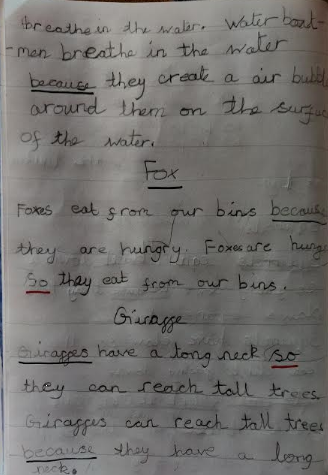 breathe in the water. Water boat-
-men breathe in the water
because they create a air bubbl
around them on the surfac
of the water.
Fox
Foxes eat from our bins because
they are hungry. Foxes are hung
so they eat from our bins.
Giraffe
Giraffes have a long neck so
they can reach tall trees.
Giraffes can reach tall trees
because they have a long
neck.